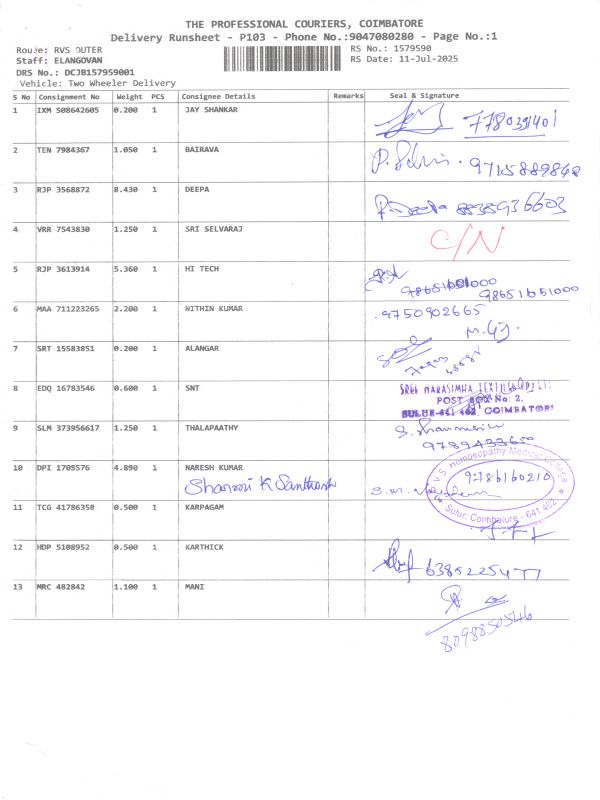 THE PROFESSIONAL COURIERS, COIMBATORE
Delivery Runsheet - P103 - Phone No.:9047080280 - Page No.:1
Route: RVS OUTER RS No.: 1579590
Staff: ELANGOVAN RS Date: 11-Jul-2025
DRS No.: DCJB157959001
Vehicle: Two Wheeler Delivery
S No Consignment No Weight PCS Consignee Details Remarks Seal & Signature
1 IXM 508642605 0.200 1 JAY SHANKAR
2 TEN 7984367 1.050 1 BAIRAVA 9715889848
3 RJP 3568872 8.430 1 DEEPA Deepa 8838936603
4 VRR 7543830 1.250 1 SRI SELVARAJ C/N
5 RJP 3613914 5.360 1 HI TECH
9865161000 9865161000
6 MAA 711223265 2.200 1 NITHIN KUMAR 9750902665
7 SRT 15583851 0.200 1 ALANGAR
8 EDQ 16783546 0.600 1 SNT SREE NARASIMHA TEXTILES
POST BOX No: 2.
SULUR-641 402, COIMBATORE
9 SLM 373956617 1.250 1 THALAPAATHY
10 DPI 1705576 4.890 1 NARESH KUMAR R.V.S. Homoeopathy Medical College
9786160210
Sulur, Coimbatore - 641 402
11 TCG 41786358 0.500 1 KARPAGAM
12 HDP 5108952 0.500 1 KARTHICK 6385225477
13 MRC 482842 1.100 1 MANI
8098850546